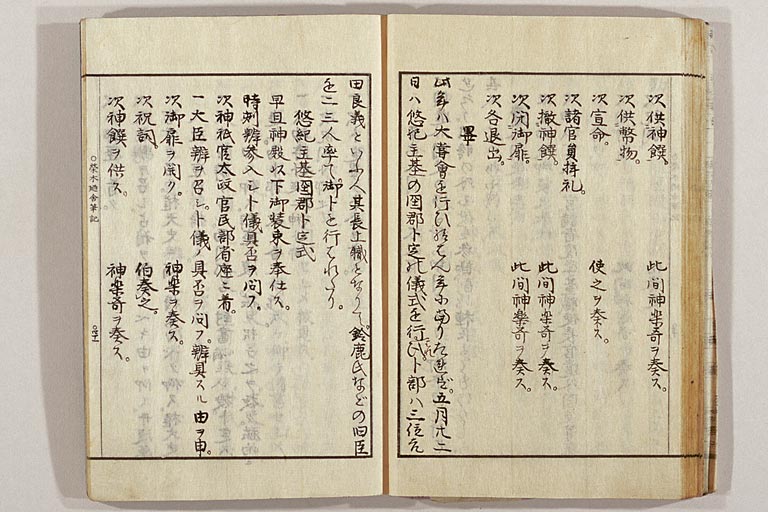 次供神饌。 此间神楽奇ヲ奏ス。
次供幣物。
次宣命。 使之ヲ奏ス。
次諸官員拝礼。
次撤神饌。 此间神楽奇ヲ奏ス。
次闭御扉。 此间神楽奇ヲ奏ス。
次各退出。
畢
此年ハ大嘗會を行ひ給はん年に当りたれば。五月廿二
日ハ悠紀主基の国郡卜定の儀式を行はれ卜部ハ三位
田良義といふ人其長上職となりて。鈴鹿氏などの旧臣
を二三人率て。御卜を行はれたり。
悠紀主基国郡卜定式
早旦神殿以下御装束ヲ奉仕ス。
時刻辨参入シト儀具否ヲ问フ。
次神祇官太政官民部省座ニ着。
一大臣辨ヲ召シ。卜儀ノ具否ヲ问フ。辨具スル由ヲ申。
次御扉ヲ開ク。 神楽ヲ奏ス。
次祝詞。 伯奏之。
次神饌ヲ供ス。 神楽奇ヲ奏ス。
○榮木廼舎筆記